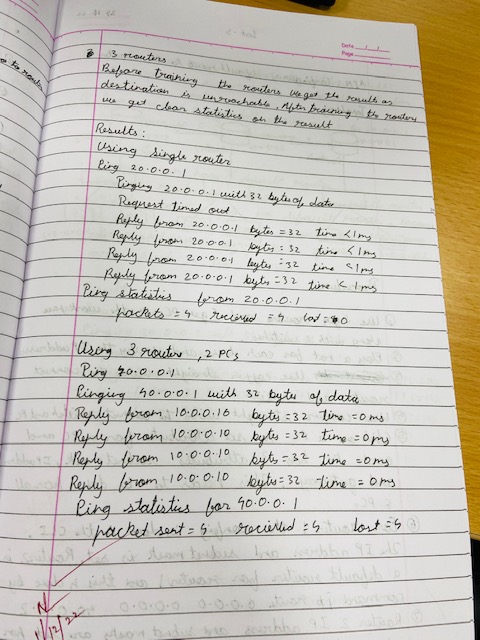 Date
Page
3 routers
Before training the routers we get the result as
destination is unreachable. After training the routers
we get clear statistics on the result
Results:
Using single router
Ping 20.0.0.1
Pinging 20.0.0.1 with 32 bytes of data
Request timed out
Reply from 20.0.0.1 bytes = 32 time < 1ms
Reply from 20.0.0.1 bytes = 32 time < 1ms
Reply from 20.0.0.1 bytes = 32 time < 1ms
Reply from 20.0.0.1 bytes = 32 time < 1ms
Ping statistics from 20.0.0.1
packets = 4 recieved = 4 lost = 0
Using 3 router, 2 PCs
Ping 40.0.0.1
Pinging 40.0.0.1 with 32 bytes of data
Reply from 10.0.0.10 bytes = 32 time = 0ms
Reply from 10.0.0.10 bytes = 32 time = 0ms
Reply from 10.0.0.10 bytes = 32 time = 0ms
Reply from 10.0.0.10 bytes = 32 time = 0ms
Ping statistics for 40.0.0.1
packet sent = 4 recieved = 4 lost = 4